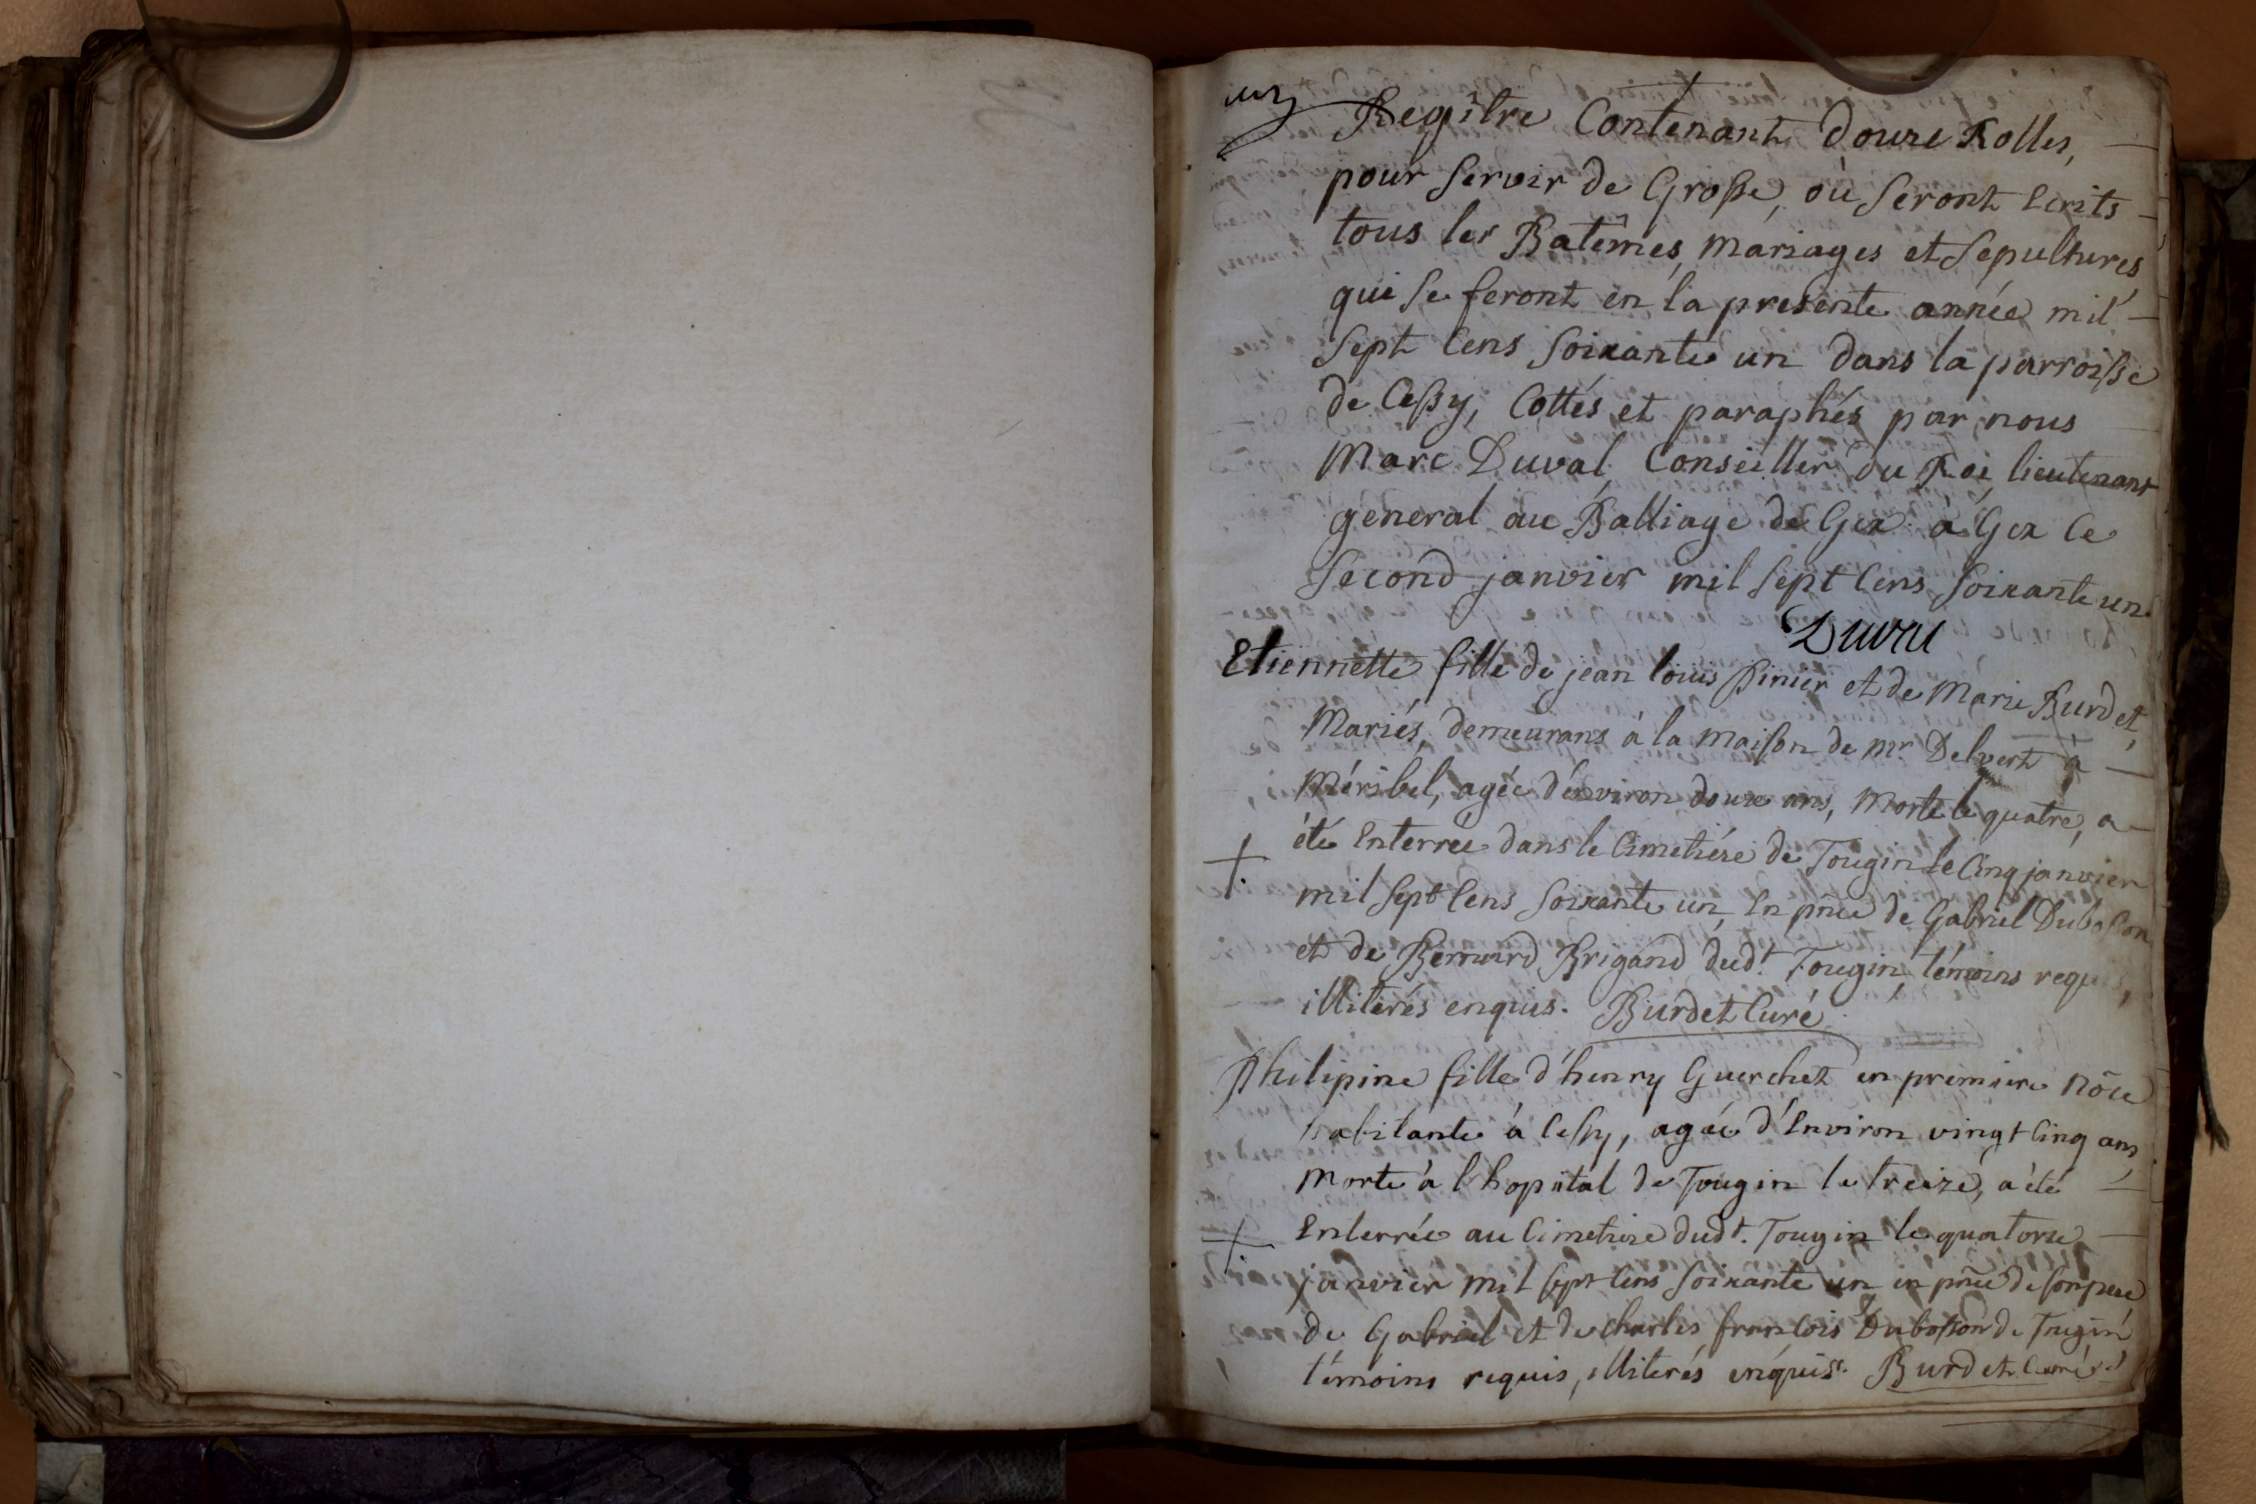 Regître Contenant douze Rolles,
pour servir de Grosse, où seront Ecrits
tous les Batêmes, mariages et sepultures
qui se feront en la presente année mil
sept Cens soixante un dans la parroisse
de Cessy, Cottés et paraphés par nous
Marc Duval Conseiller du Roi, lieutenant
géneral au Balliage de Gex. à Gex Ce
second janvier mil sept Cens soixante un.
Etiennette fille de jean loüis Pinier et de Marie Burdet,
Mariés, demeurans à la Maison de mr. Delvert à
Méribel, agée d'énviron douze ans, Morte le quatre, a
été Enterrée dans le Cimetiére de Tougin le Cinq janvier
mil sept Cens soixante un, En pñce de Gabriel Dubosson
et de Bernard Brigand dudt. Tougin, témoins requis,
illiterés enquis. Burdet Curé
Philipine fille d'henry Guerchet en premiere nôce
habitante à Cessy, agée d'Environ vingt Cinq ans,
Morte à l'hopital de Tougin le treize, a été
Enterrée au Cimetiere dudt. Tougin le quatorze
janvier mil sept Cens soixante un en pñce de son pere
de Gabriel et de Charles françois Dubosson de Tougin
témoins requis, illiterés enquis. Burdet Curé